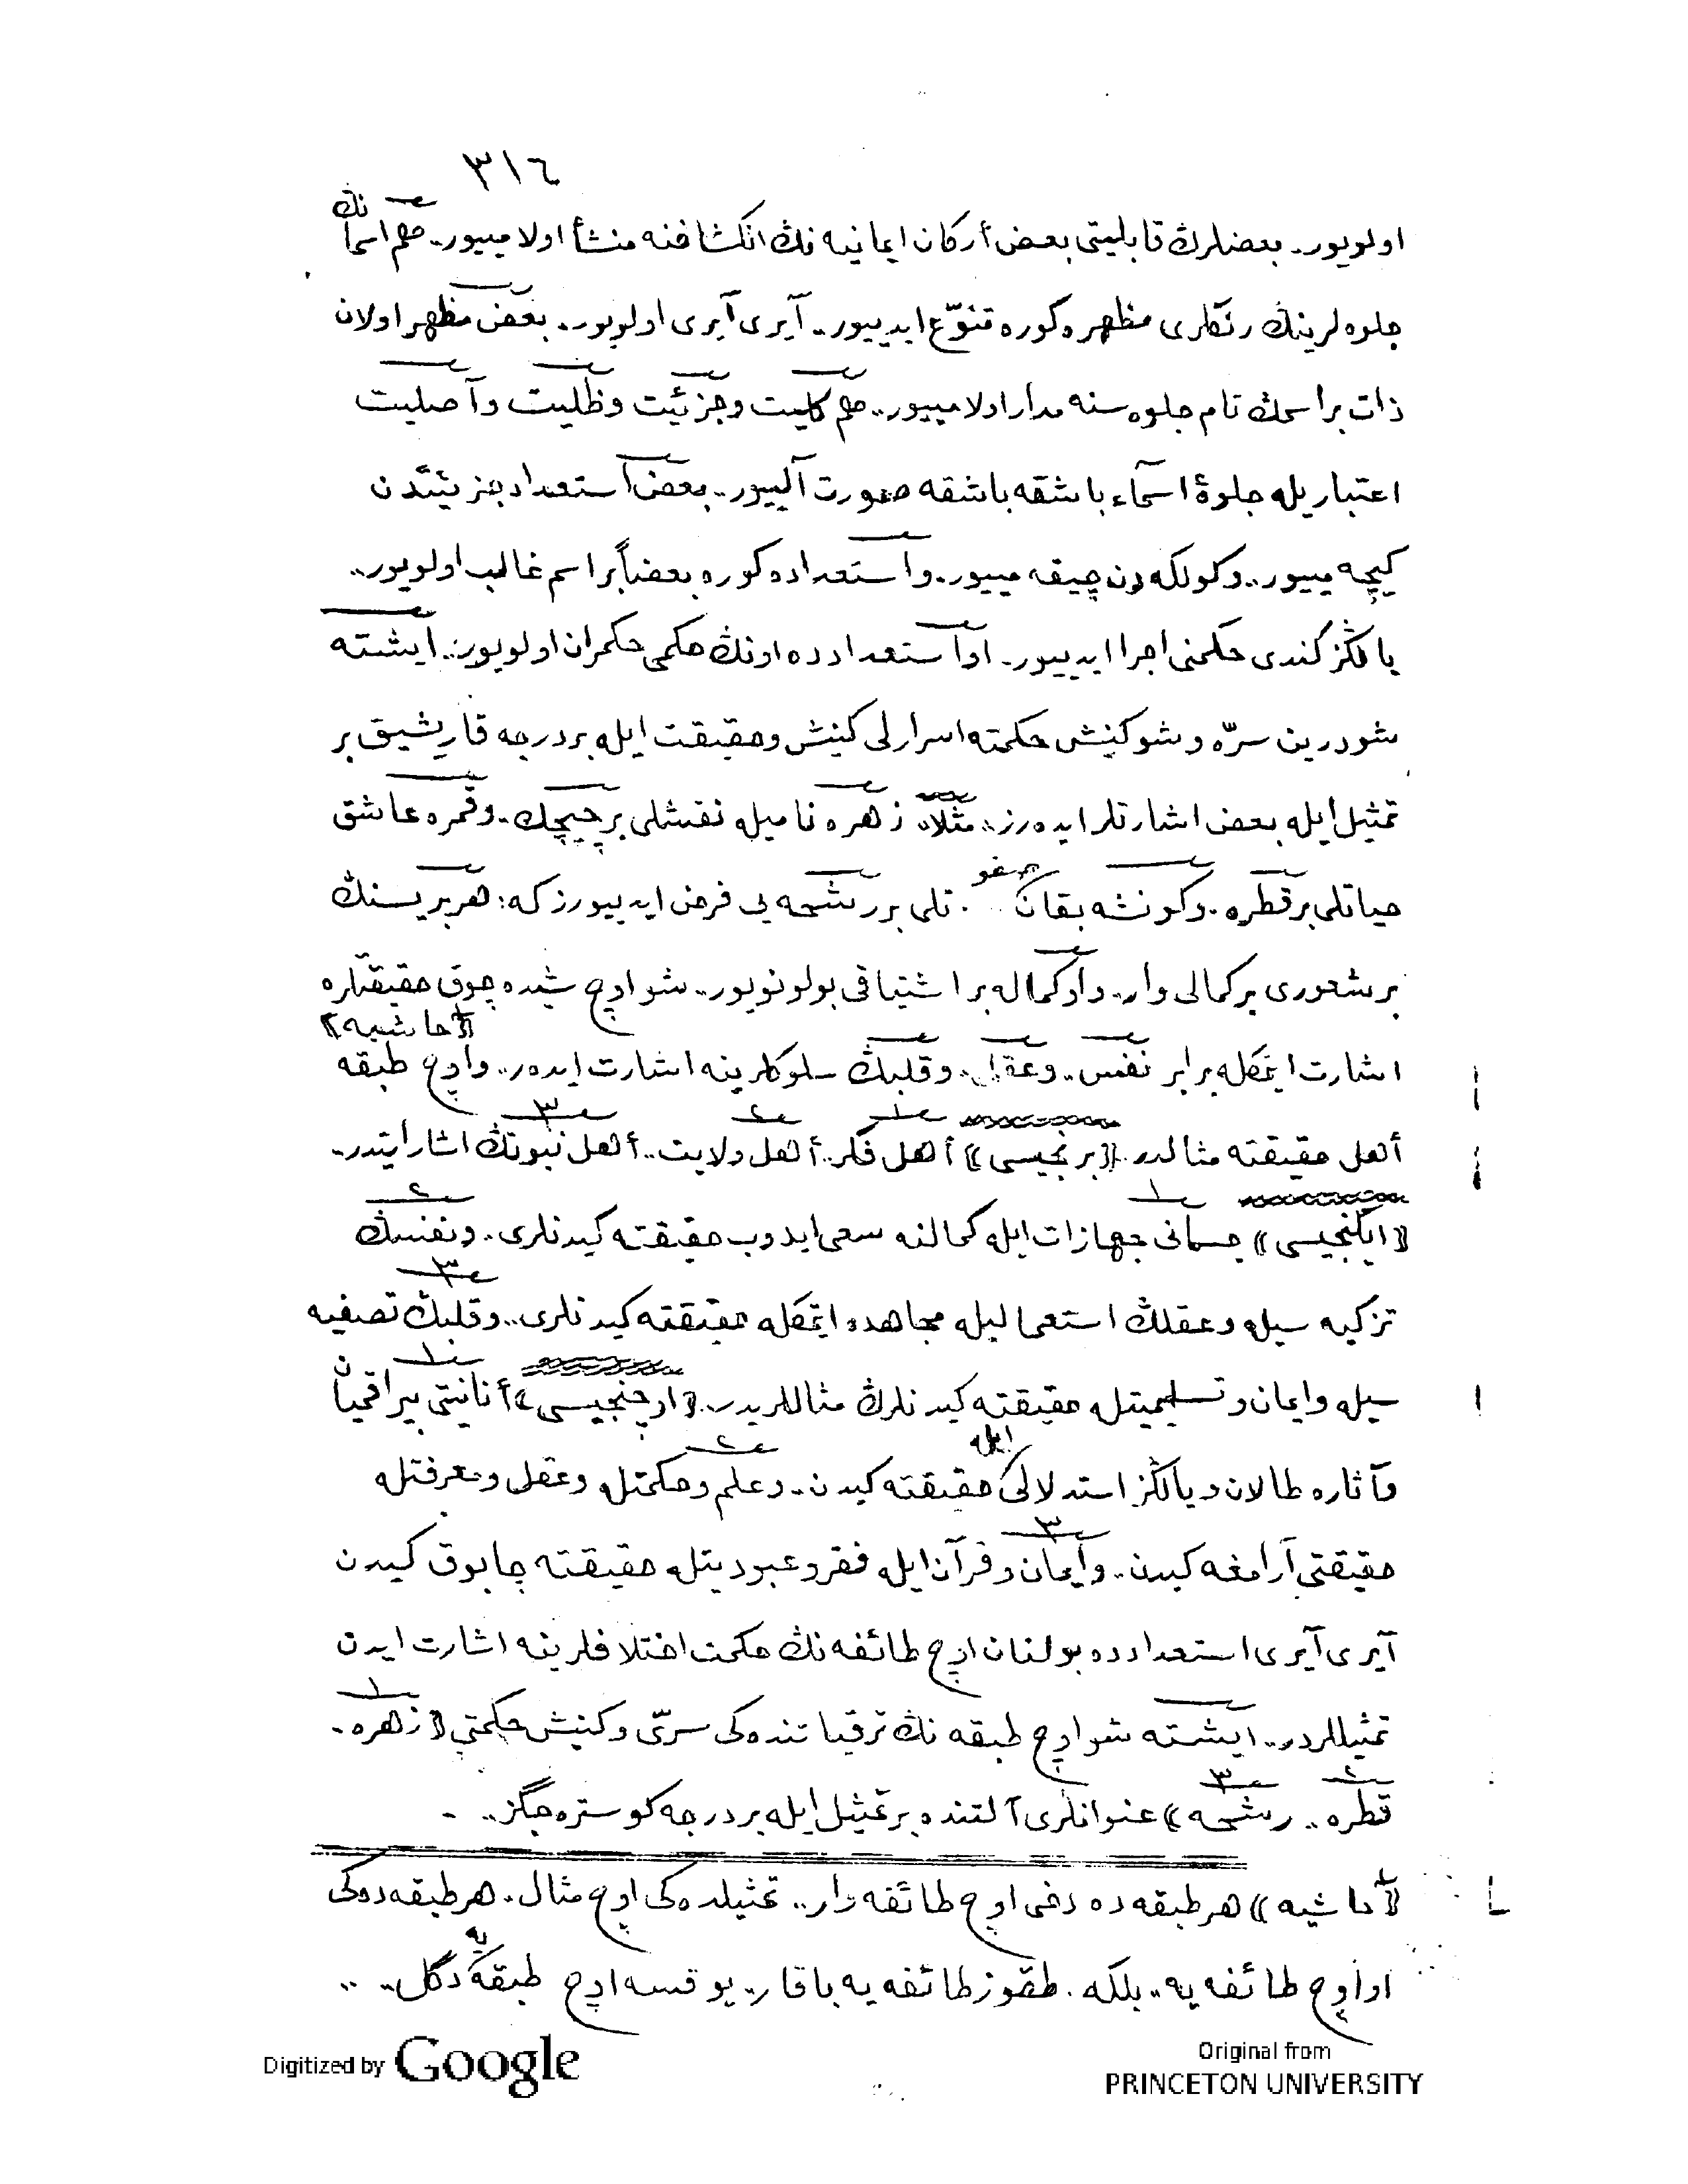 ٣١٦
اولويور.. بعضلرڭ قابليتى بعض أركان ايمانيه نڭ انكشافنه منشأ اولاميور.. هم اسمانڭ
جلوه لرينڭ رنكلرى مظهره كوره تنوّع ايدييور.. آيرى آيرى اولويور.. بعض مظهر اولان
ذات بر اسمڭ تام جلوه سنه مدار اولامييور.. هم كليت وجزئيت وظليت وآصليت
اعتباريله جلوۀ اسماء باشقه باشقه صورت آلييور.. بعض استعداد جزئيتدن
كيچه مييور.. وكولكه دن چيقه مييور.. واستعداده كوره بعضاً بر اسم غالب اولويور..
يالڭز كندى حكمنى اجرا ايدييور.. او استعدادده اونڭ حكمى حكمران اولويور.. ايشته
شو درين سرّه وشو كنيش حكمته اسرارلى كنيش وحقيقت ايله بر درجه قاريشيق بر
تمثيل ايله بعض اشارتلر ايده رز.. مثلا، زهره ناميله نقشلى بر چيچك. وقمره عاشق
حياتلى بر قطره. وكونشه بقان صفوتلى بر رشحه يى فرض ايدييورز كه: هر بريسنڭ
بر شعورى بر كمالى وار.. واو كماله بر اشتياقى بولونويور.. شو اوچ شيده چوق حقيقتلره
اشارت ايتمكله برابر نفس.. وعقل.. وقلبڭ سلوكلرينه اشارت ايدر.. واوچ طبقه ﴿حاشيه﴾
أهل حقيقته مثالدر.. ﴿برنجيسى﴾ أهل فكر.. أهل ولايت.. أهل نبوتڭ اشاراتيدر..
﴿ايكنجيسى﴾ جسمانى جهازات ايله كمالنه سعى ايدوب حقيقته كيدنلرى. ونفسڭ
تزكيه سيله وعقلڭ استعماليله مجاهده ايتمكله حقيقته كيدنلرى.. وقلبڭ تصفيه
سيله وايمان وتسليميتله حقيقته كيدنلرڭ مثاللريدر.. ﴿اوچنجيسى﴾ أنانيتى بيراقميان
وآثاره طالان ويالڭز استدلالى ايله حقيقته كيدن.. وعلم وحكمتله وعقل ومعرفتله
حقيقتى آرامغه كيدن.. وايمان وقرآن ايله فقر وعبوديتله حقيقته چابوق كيدن
آيرى آيرى استعدادده بولنان اوچ طائفه نڭ حكمت اختلافلرينه اشارت ايدن
تمثيللردر.. ايشته شو اوچ طبقه نڭ ترقياتنده كى سرّى وكنيش حكمتى ﴿زهره..
قطره.. رشحه﴾ عنوانلرى آلتنده بر تمثيل ايله بر درجه كوستره جگز..
﴿حاشيه﴾ هر طبقه ده دخى اوچ طائفه وار.. تمثيلده كى اوچ مثال. هر طبقه ده كى
او اوچ طائفه يه.. بلكه. طقوز طائفه يه باقار.. يوقسه اوچ طبقه يه دگل..
Digitized by Google
Original from
PRINCETON UNIVERSITY